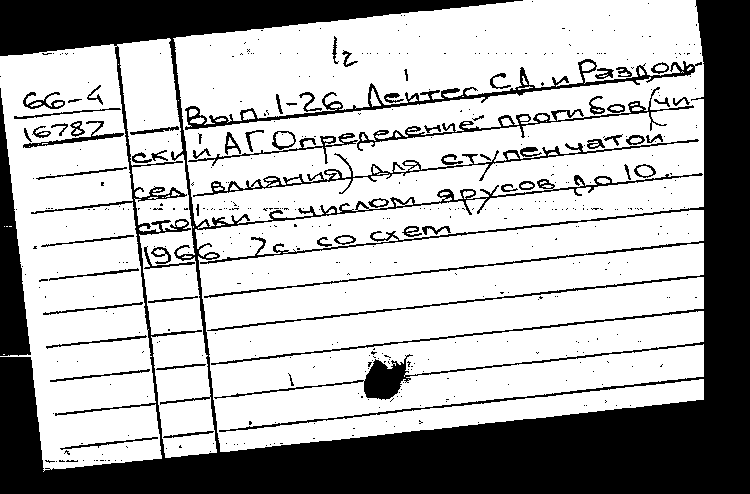 1/2
66-4
16787
Вып. 1-26. Лейтес, С.Д. и Раздоль-
ский, А.Г. Определение прогибов (чи-
сел влияния) для ступенчатой
стойки с числом ярусов до 10.
1966. 7с. со схем